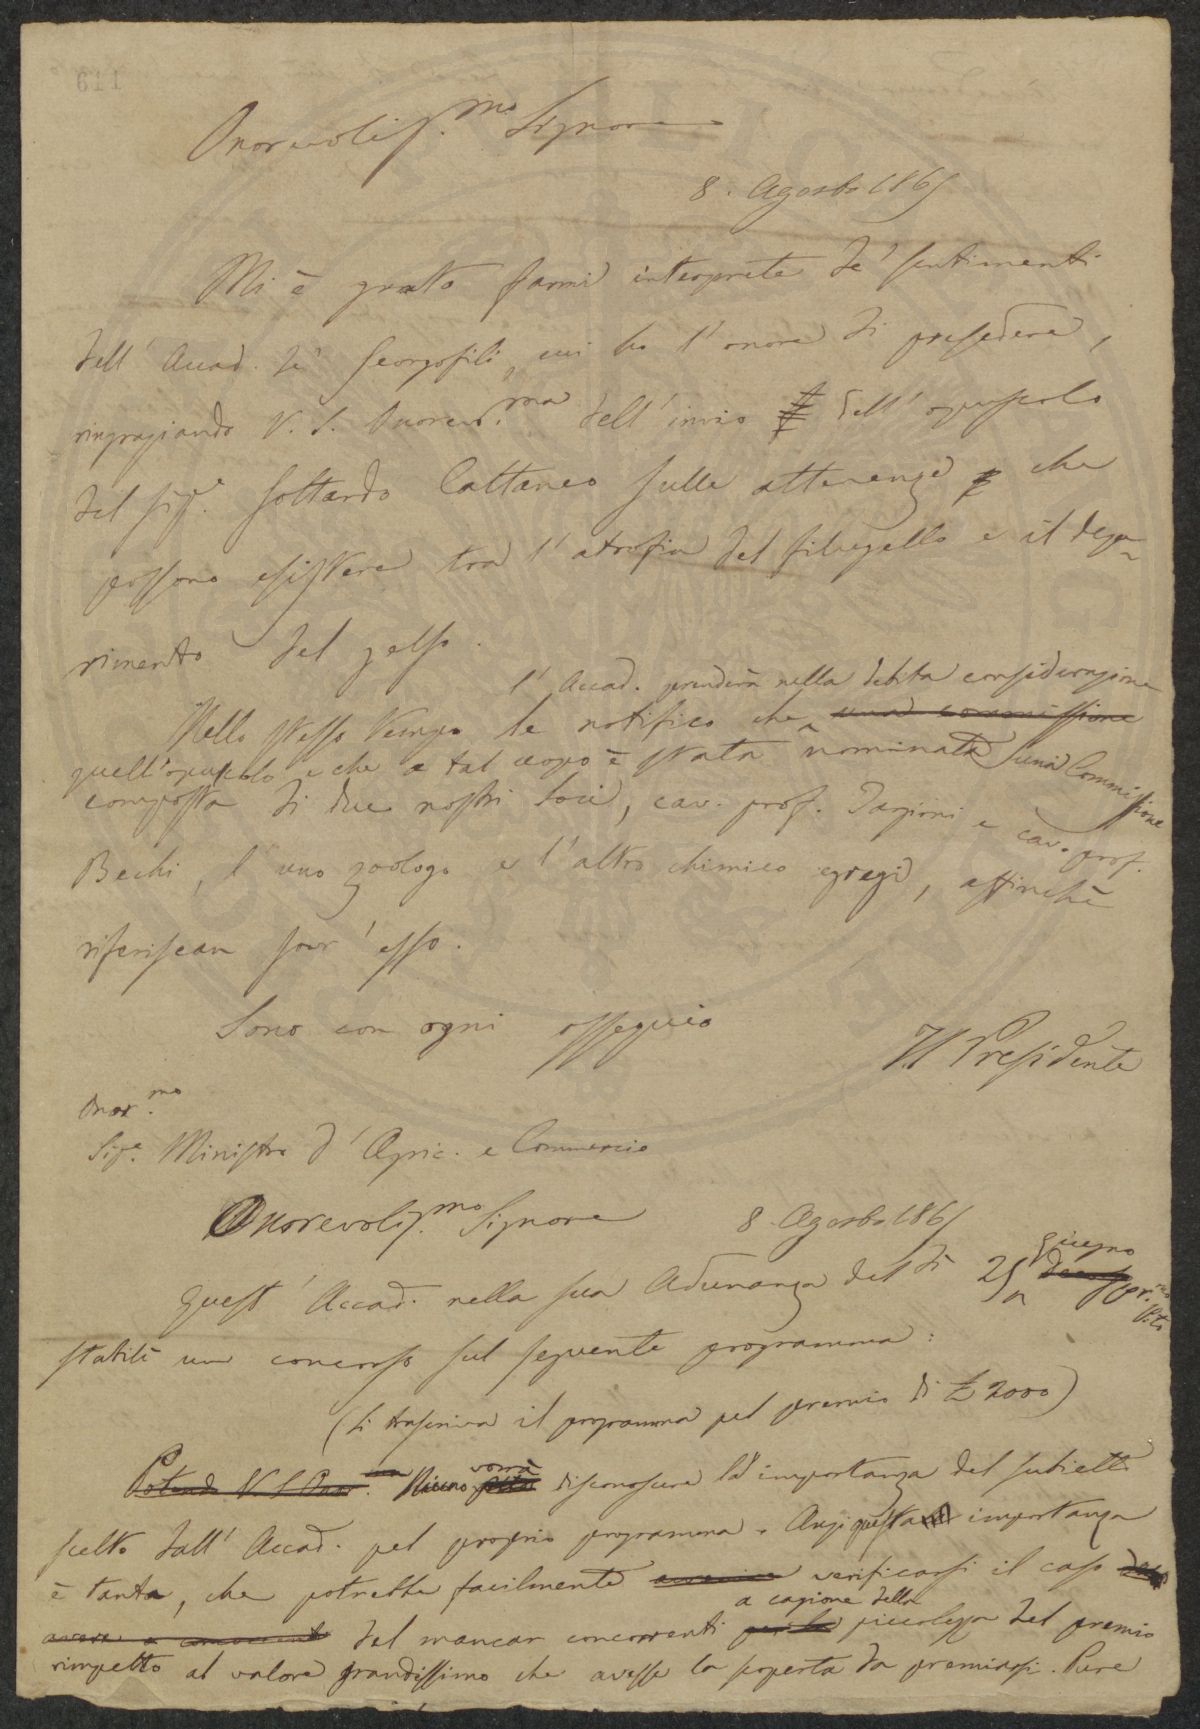 Onorevolis.mo Signore
8. Agosto 1865
Mi è grato farmi interprete de' sentimenti
dell' Accad. de' Georgofili, cui ho l'onore di presedere,
ringraziando V. S. Onorev.ma dell' invio dell' opuscolo
del sig.e Gottardo Cattaneo sulle attenenze che
possono esistere tra l'atrofia del filugello e il depe-
rimento del gelso.
l' Accad. prenderà nella debita considerazione
Nello stesso tempo le notifico che una commissione
quell'opuscolo e che a tal uopo è stata nominata una Commissione
composta di due nostri Soci, cav. prof. Targioni e cav. prof.
Bechi, l'uno zoologo e l'altro chimico egregi, affinchè
riferiscan sovr' esso.
Sono con ogni ossequio
Il Presidente
Onor.mo
Sig.e Ministro d' Agric. e Commercio
Onorevolis.mo Signore 8. Agosto 1865
giugno
Quest' Accad. nella sua Adunanza del dì 25
stabilì un concorso sul seguente programma:
(Si trascriva il programma pel premio di £ 2000)
vorrà
Potendo V. S. Onor. Niuno disconoscere l'importanza del subietto
scelto dall' Accad. pel proprio programma. Anzi questa importanza
è tanta, che potrebbe facilmente verificarsi il caso
a cagione della
del mancar concorrenti per la piccolezza del premio
rimpetto al valore grandissimo che avesse la scoperta da premiarsi. Pure